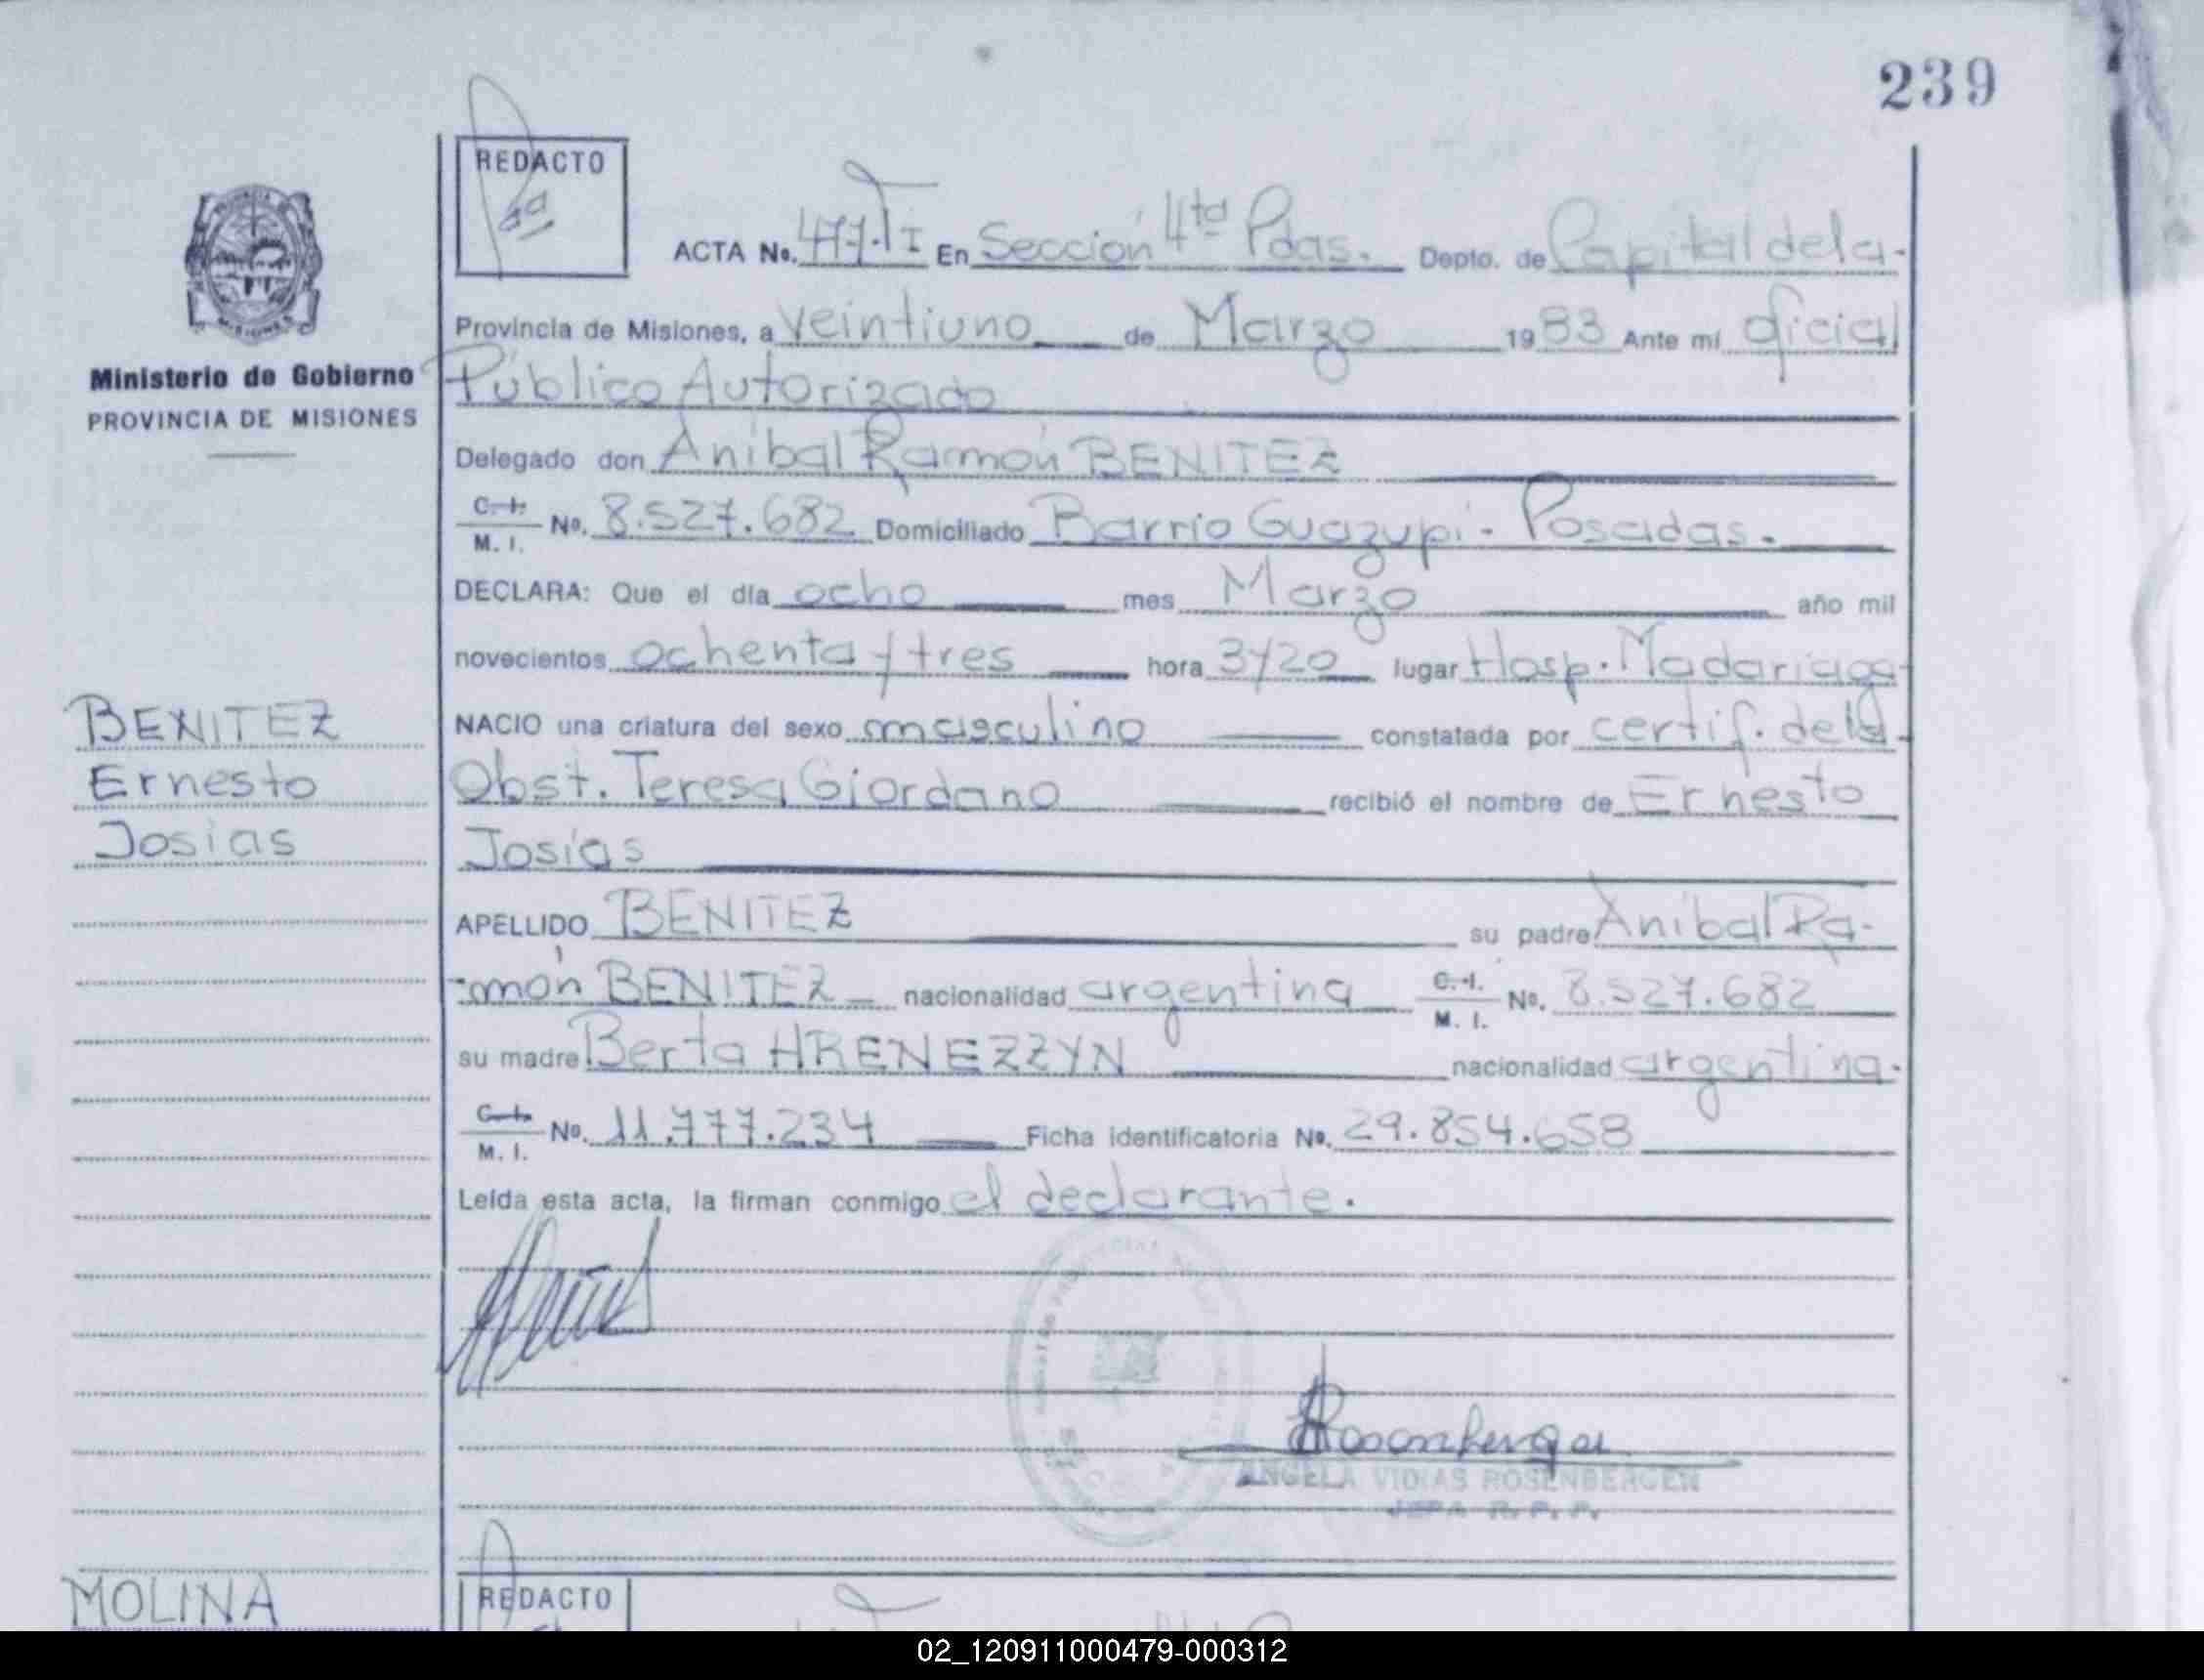 239
REDACTO
ACTA No. 477.TI En Sección 4ta Pdas. Depto. de Capital de la-
Provincia de Misiones, a veintiuno de Marzo 1983 Ante mí oficial
Ministerio de Gobierno
PROVINCIA DE MISIONES
Público Autorizado
Delegado don Aníbal Ramón BENITEZ
C. I. M. I. No. 8.527.682 Domiciliado Barrio Guazupi - Posadas.
DECLARA: Que el día ocho mes Marzo año mil
novecientos ochenta y tres hora 3y20 lugar Hosp. Madariaga
BENITEZ
Ernesto
Josías
NACIO una criatura del sexo masculino constatada por certif. de la
Obst. Teresa Giordano recibió el nombre de Ernesto
Josías
APELLIDO BENITEZ su padre Aníbal Ra-
-món BENITEZ nacionalidad argentina C. I. M. I. No. 8.527.682
su madre Berta HRENEZZYN nacionalidad argentina.
C. I. M. I. No. 11.777.234 Ficha identificatoria No. 29.854.658
Leída esta acta, la firman conmigo el declarante.
ANGELA VIDIAS ROSENBERGEN
JEFA R. P. P.
MOLINA
REDACTO
02_120911000479-000312